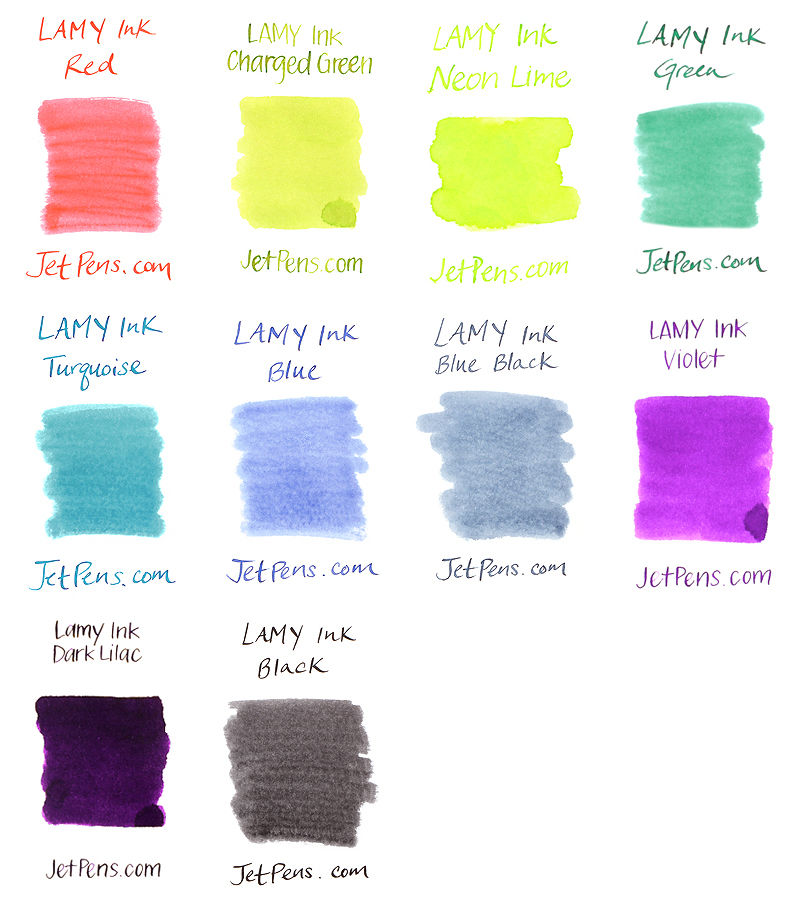 LAMY Ink
Red
JetPens.com
LAMY Ink
Charged Green
JetPens.com
LAMY Ink
Neon Lime
JetPens.com
LAMY Ink
Green
JetPens.com
LAMY Ink
Turquoise
JetPens.com
LAMY Ink
Blue
JetPens.com
LAMY Ink
Blue Black
JetPens.com
LAMY Ink
Violet
JetPens.com
Lamy Ink
Dark Lilac
JetPens.com
LAMY Ink
Black
JetPens.com